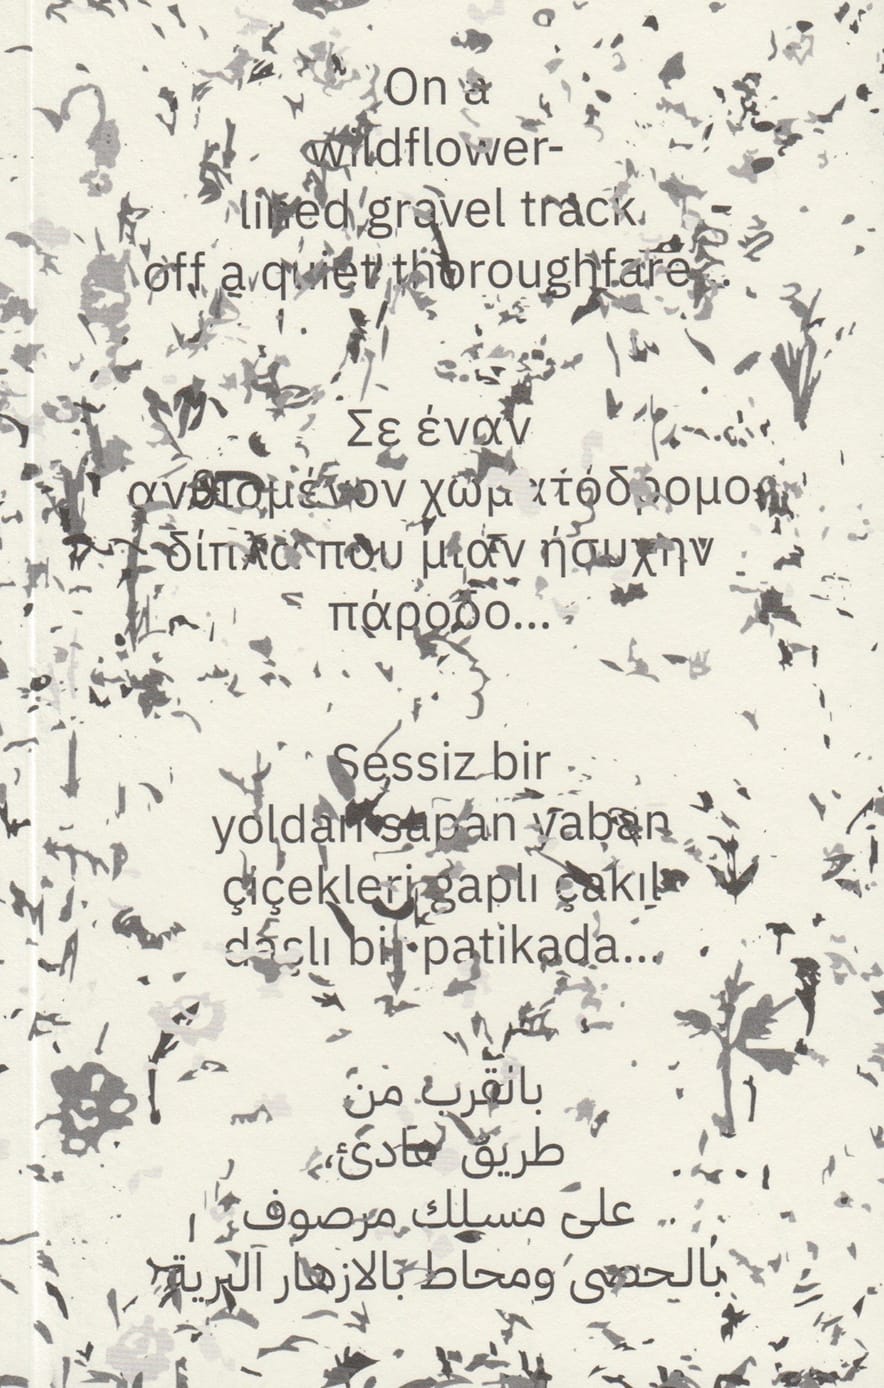 On a
wildflower-
lined gravel track
off a quiet thoroughfare...
Σε έναν
ανθισμένον χωματόδρομον
δίπλα που μιαν ήσυχην
πάροδο...
Sessiz bir
yoldan sapan yaban
çiçekleri gaplı çakıl
daşlı bir patikada...
بالقرب من
طريق هادئ،
على مسلك مرصوف
بالحصى ومحاط بالازهار البرية..